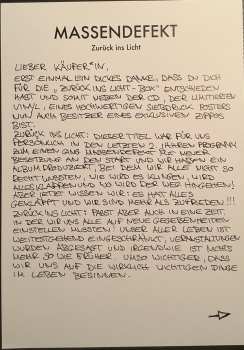 MASSENDEFEKT
Zurück ins Licht
LIEBER KÄUFER*IN,
ERST EINMAL EIN DICKES DANKE, DASS DU DICH
FÜR DIE „ZURÜCK INS LICHT-BOX" ENTSCHIEDEN
HAST UND SOMIT NEBEN DER CD, DER LIMITIERTEN
VINYL, EINES HOCHWERTIGEN SIEBDRUCK POSTERS
NUN AUCH BESITZER EINES EXKLUSIVEN ZIPPOS
BIST.
ZURÜCK INS LICHT: DIESER TITEL WAR FÜR UNS
PERSÖNLICH IN DEN LETZTEN 2 JAHREN PROGRAMM
ZUM EINEN GING MASSENDEFEKT IN NEUER
BESETZUNG AN DEN START UND WIR HABEN EIN
ALBUM PRODUZIERT, BEI DEM WIR ALLE NICHT SO
RECHT WUSSTEN, WIE WIRD ES KLINGEN, WIRD
ALLES KLAPPEN UND WO WIRD DER WEG HINGEHEN!
ABER JETZT WISSEN WIR: ES HAT ALLES
GEKLAPPT UND WIR SIND MEHR ALS ZUFRIEDEN!!!
ZURÜCK INS LICHT: PASST ABER AUCH IN EINE ZEIT,
IN DER WIR UNS ALLE AUF NEUE GEGEBENHEITEN
EINSTELLEN MUSSTEN! UNSER ALLER LEBEN IST
WEITESTGEHEND EINGESCHRÄNKT, VERANSTALTUNGEN
WURDEN ABGESAGT UND IRGENDWIE IST NICHTS
MEHR SO WIE FRÜHER. UMSO WICHTIGER, DASS
WIR UNS AUF DIE WIRKLICH WICHTIGEN DINGE
IM LEBEN BESINNEN.